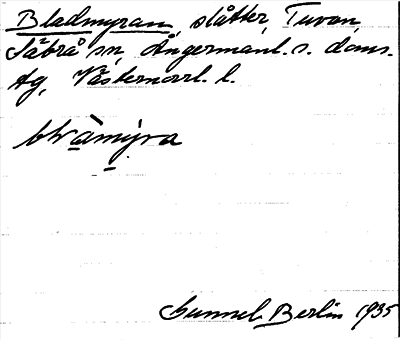 Bladmyran, slåtter, Tuvan,
Säbrå sn, Ångermanl. s. doms.
tg, Västernorrl. l.
blràmýra
Gunnel Berlin 1935